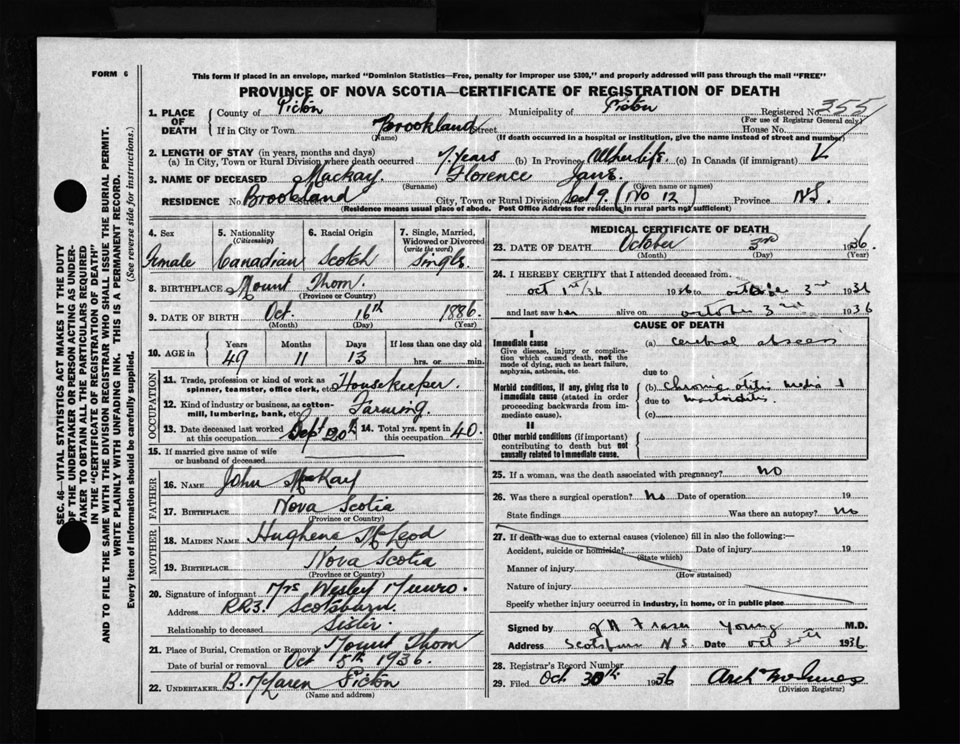 FORM 6
This form if placed in an envelope, marked "Dominion Statistics—Free, penalty for improper use $300," and properly addressed will pass through the mail "FREE"
PROVINCE OF NOVA SCOTIA—CERTIFICATE OF REGISTRATION OF DEATH
1. PLACE OF DEATH
County of Pictou Municipality of Pictou Registered No. 355
(For use of Registrar General only)
If in City or Town Brookland Street House No.
(Name) (If death occurred in a hospital or institution, give the name instead of street and number)
2. LENGTH OF STAY (in years, months and days)
(a) In City, Town or Rural Division where death occurred 7 years (b) In Province All her life (c) In Canada (if immigrant)
3. NAME OF DECEASED MacKay Florence Jane
(Surname) (Given name or names)
RESIDENCE No. Brookland Street City, Town or Rural Division 9 (No 12) Province N.S.
(Residence means usual place of abode. Post Office Address for residents in rural parts not sufficient)
4. Sex
Female
5. Nationality
(Citizenship)
Canadian
6. Racial Origin
Scotch
7. Single, Married, Widowed or Divorced
(write the word)
Single
8. BIRTHPLACE Mount Thom
(Province or Country)
9. DATE OF BIRTH Oct. 16th 1886
(Month) (Day) (Year)
10. AGE in
Years Months Days If less than one day old
49 11 13 hrs. or min.
OCCUPATION
11. Trade, profession or kind of work as spinner, teamster, office clerk, etc. Housekeeper
12. Kind of industry or business, as cotton-mill, lumbering, bank, etc. Farming
13. Date deceased last worked at this occupation Sept 20th
14. Total yrs. spent in this occupation 40
15. If married give name of wife or husband of deceased
FATHER
16. NAME John MacKay
17. BIRTHPLACE Nova Scotia
(Province or Country)
MOTHER
18. MAIDEN NAME Hughena McLeod
19. BIRTHPLACE Nova Scotia
(Province or Country)
20. Signature of informant Mrs Wesley Munro
Address RR3. Scotsburn
Relationship to deceased Sister
21. Place of Burial, Cremation or Removal Mount Thom
Date of burial or removal Oct 5th 1936
22. UNDERTAKER B. McLaren Pictou
(Name and address)
MEDICAL CERTIFICATE OF DEATH
23. DATE OF DEATH October 3rd 1936
(Month) (Day) (Year)
24. I HEREBY CERTIFY that I attended deceased from
Oct 1st/36 1936 to October 3rd 1936
and last saw her alive on October 3rd 1936
CAUSE OF DEATH
I
Immediate cause
Give disease, injury or complication which caused death, not the mode of dying, such as heart failure, asphyxia, asthenia, etc.
(a) cerebral abscess
due to
Morbid conditions, if any, giving rise to immediate cause (stated in order proceeding backwards from immediate cause).
(b) Chronic otitis media
due to mastoiditis
(c)
II
Other morbid conditions (if important) contributing to death but not causally related to immediate cause.
25. If a woman, was the death associated with pregnancy? NO
26. Was there a surgical operation? No Date of operation 19
State findings Was there an autopsy? No
27. If death was due to external causes (violence) fill in also the following:—
Accident, suicide or homicide? Date of injury 19
(State which)
Manner of injury
(How sustained)
Nature of injury
Specify whether injury occurred in industry, in home, or in public place
Signed by Fraser Young M.D.
Address Scotsburn N.S. Date Oct 1936
28. Registrar's Record Number
29. Filed Oct 30th 1936
(Division Registrar)
SEC. 46—VITAL STATISTICS ACT MAKES IT THE DUTY
OF THE UNDERTAKER OR PERSON ACTING AS UNDER-
TAKER TO OBTAIN ALL THE PARTICULARS REQUIRED
IN THE "CERTIFICATE OF REGISTRATION OF DEATH"
AND TO FILE THE SAME WITH THE DIVISION REGISTRAR WHO SHALL ISSUE THE BURIAL PERMIT.
WRITE PLAINLY WITH UNFADING INK. THIS IS A PERMANENT RECORD.
Every item of information should be carefully supplied. (See reverse side for instructions.)